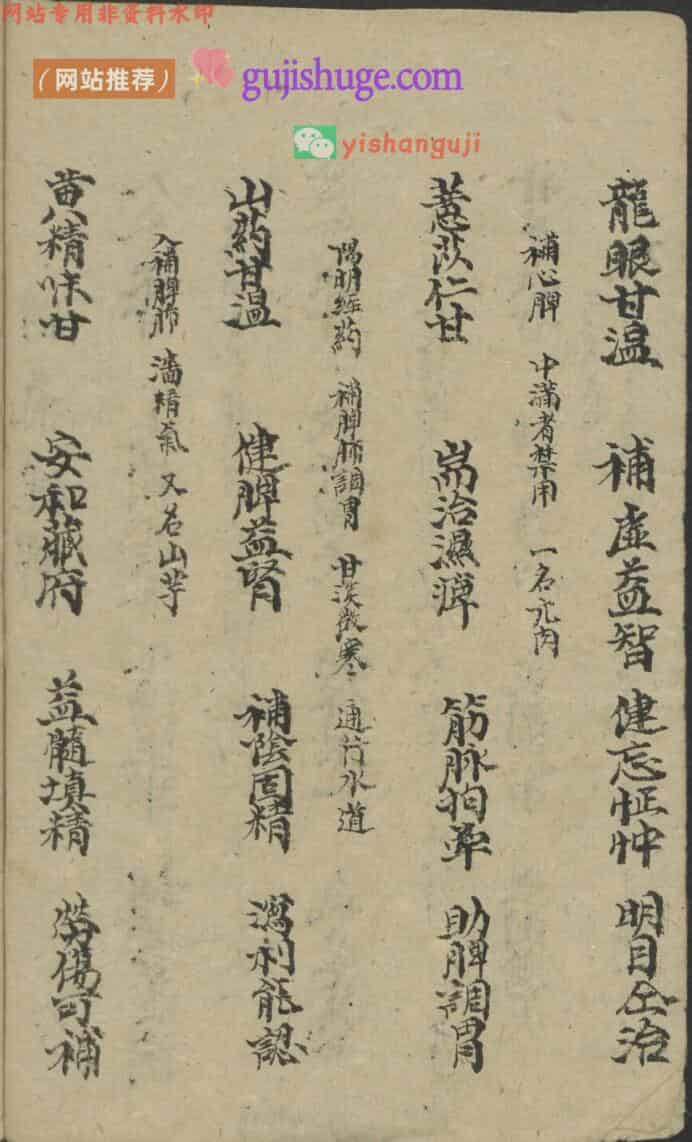 网站专用非资料水印
（网站推荐） gujishuge.com
yishanguji
龍眼甘温 補虛益智 健忘怔忡 明目仝治
補心脾 中滿者禁用 一名元肉
薏苡仁甘 耑治濕痺 筋脉拘挛 助脾調胃
陽明經药 補脾肺調胃 甘淡微寒 通行水道
山药甘温 健脾益腎 補陰固精 瀉利能認
入補脾肺 濇精氣 又名山芋
黄精味甘 安和藏府 益髓填精 勞傷可補